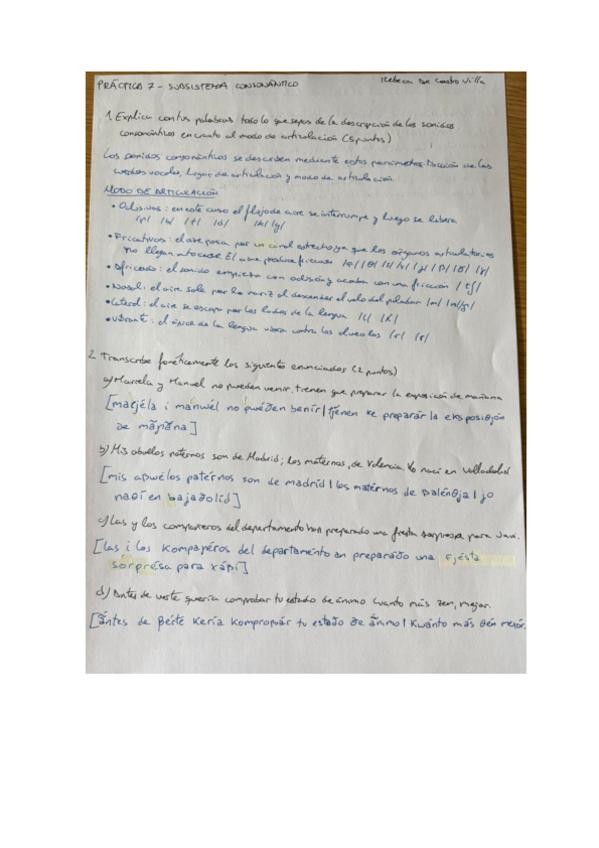 PRÁCTICA 7 - SUBSISTEMA CONSONÁNTICO
Rebeca De Castro Villa
1. Explica con tus palabras todo lo que sepas de la descripción de los sonidos
consonánticos en cuanto al modo de articulación (5 puntos)
Los sonidos consonánticos se describen mediante estos parámetros: acción de las
cuerdas vocales, lugar de articulación y modo de articulación.
MODO DE ARTICULACIÓN
• Oclusivas: en este caso el flujo de aire se interrumpe y luego se libera
/p/ /b/ /t/ /d/ /k/ /g/
• Fricativos: el aire pasa por un canal estrecho ya que los órganos articulatorios
no llegan a tocarse. El aire produce fricción
• Africado: el sonido empieza con oclusión y acaba con una fricción /tʃ/
• Nasal: el aire sale por la nariz al descender el velo del paladar /m/ /n/ /ɲ/
• Lateral: el aire se escapa por los lados de la lengua /l/ /ʎ/
• Vibrante: el ápice de la lengua vibra contra los alveolos /r/ /ɾ/
2. Transcribe fonéticamente los siguientes enunciados (2 puntos)
a) Mariela y Manuel no pueden venir, tienen que preparar la exposición de mañana
[marjéla i manwél no pwéðen benír | tjénen ke preparár la eksposiθjón
de mãɲána]
b) Mis abuelos paternos son de Madrid; los maternos, de Valencia. Yo nací en Valladolid
[mis aβwélos patérnos son de madríd | los matérnos de balénθja | jo
naθí en bajaðolíd]
c) Las y los compañeros del departamento han preparado una fiesta sorpresa para Javi.
[las i los kompaɲéros del departaménto an preparáðo una fjésta
sorprésa para xáβi]
d) Antes de verte quería comprobar tu estado de ánimo cuanto más zen, mejor.
[ántes de βérte kería komproβár tu estáðo ðe ánimo | kwánto más θén mexór.